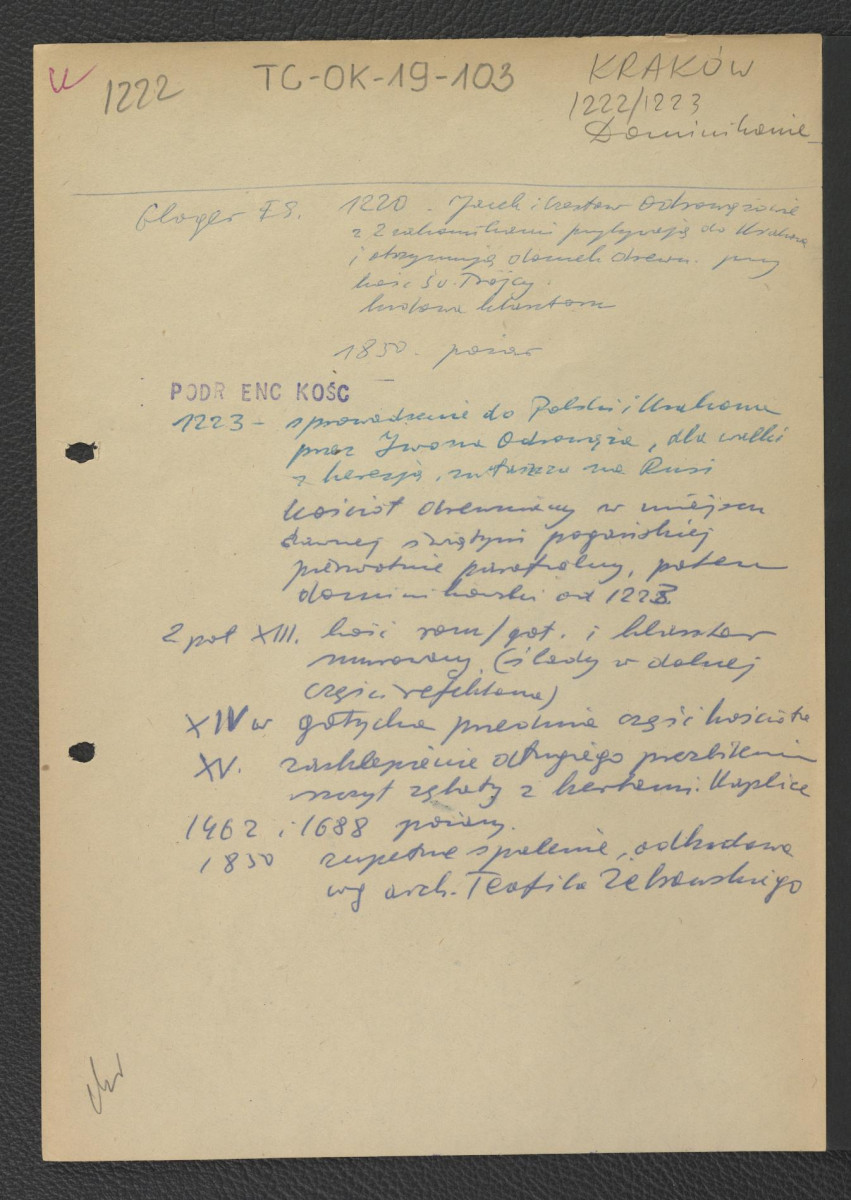 1222 TC-OK-19-103 KRAKÓW
1222/1223
Dominikanie
Gloger 1220. Jacek i Czesław Odrowążowie
z 2 zakonnikami przybywają do Krakowa
i otrzymują domek drewn. przy
kośc Św. Trójcy.
budowa klasztoru
1850. pożar
PODR ENC KOŚC
1223 - sprowadzenie do Polski i Krakowa
przez Iwona Odrowąża, dla walki
z herezją, zwłaszcza na Rusi
kościół drewniany w miejscu
dawnej świątyni pogańskiej
pierwotnie parafialny, potem
dominikański od 1223.
2 poł XIII. kośc rom/got. i klasztor
murowany (ślady w dolnej
części refektarza)
XIV w gotycka przednia część kościoła
XV. zasklepienie długiego prezbiterium
szczyt zębaty z herbami. Kaplice
1462 i 1688 pożary.
1850 zupełne spalenie, odbudowa
wg arch. Teofila Żebrawskiego